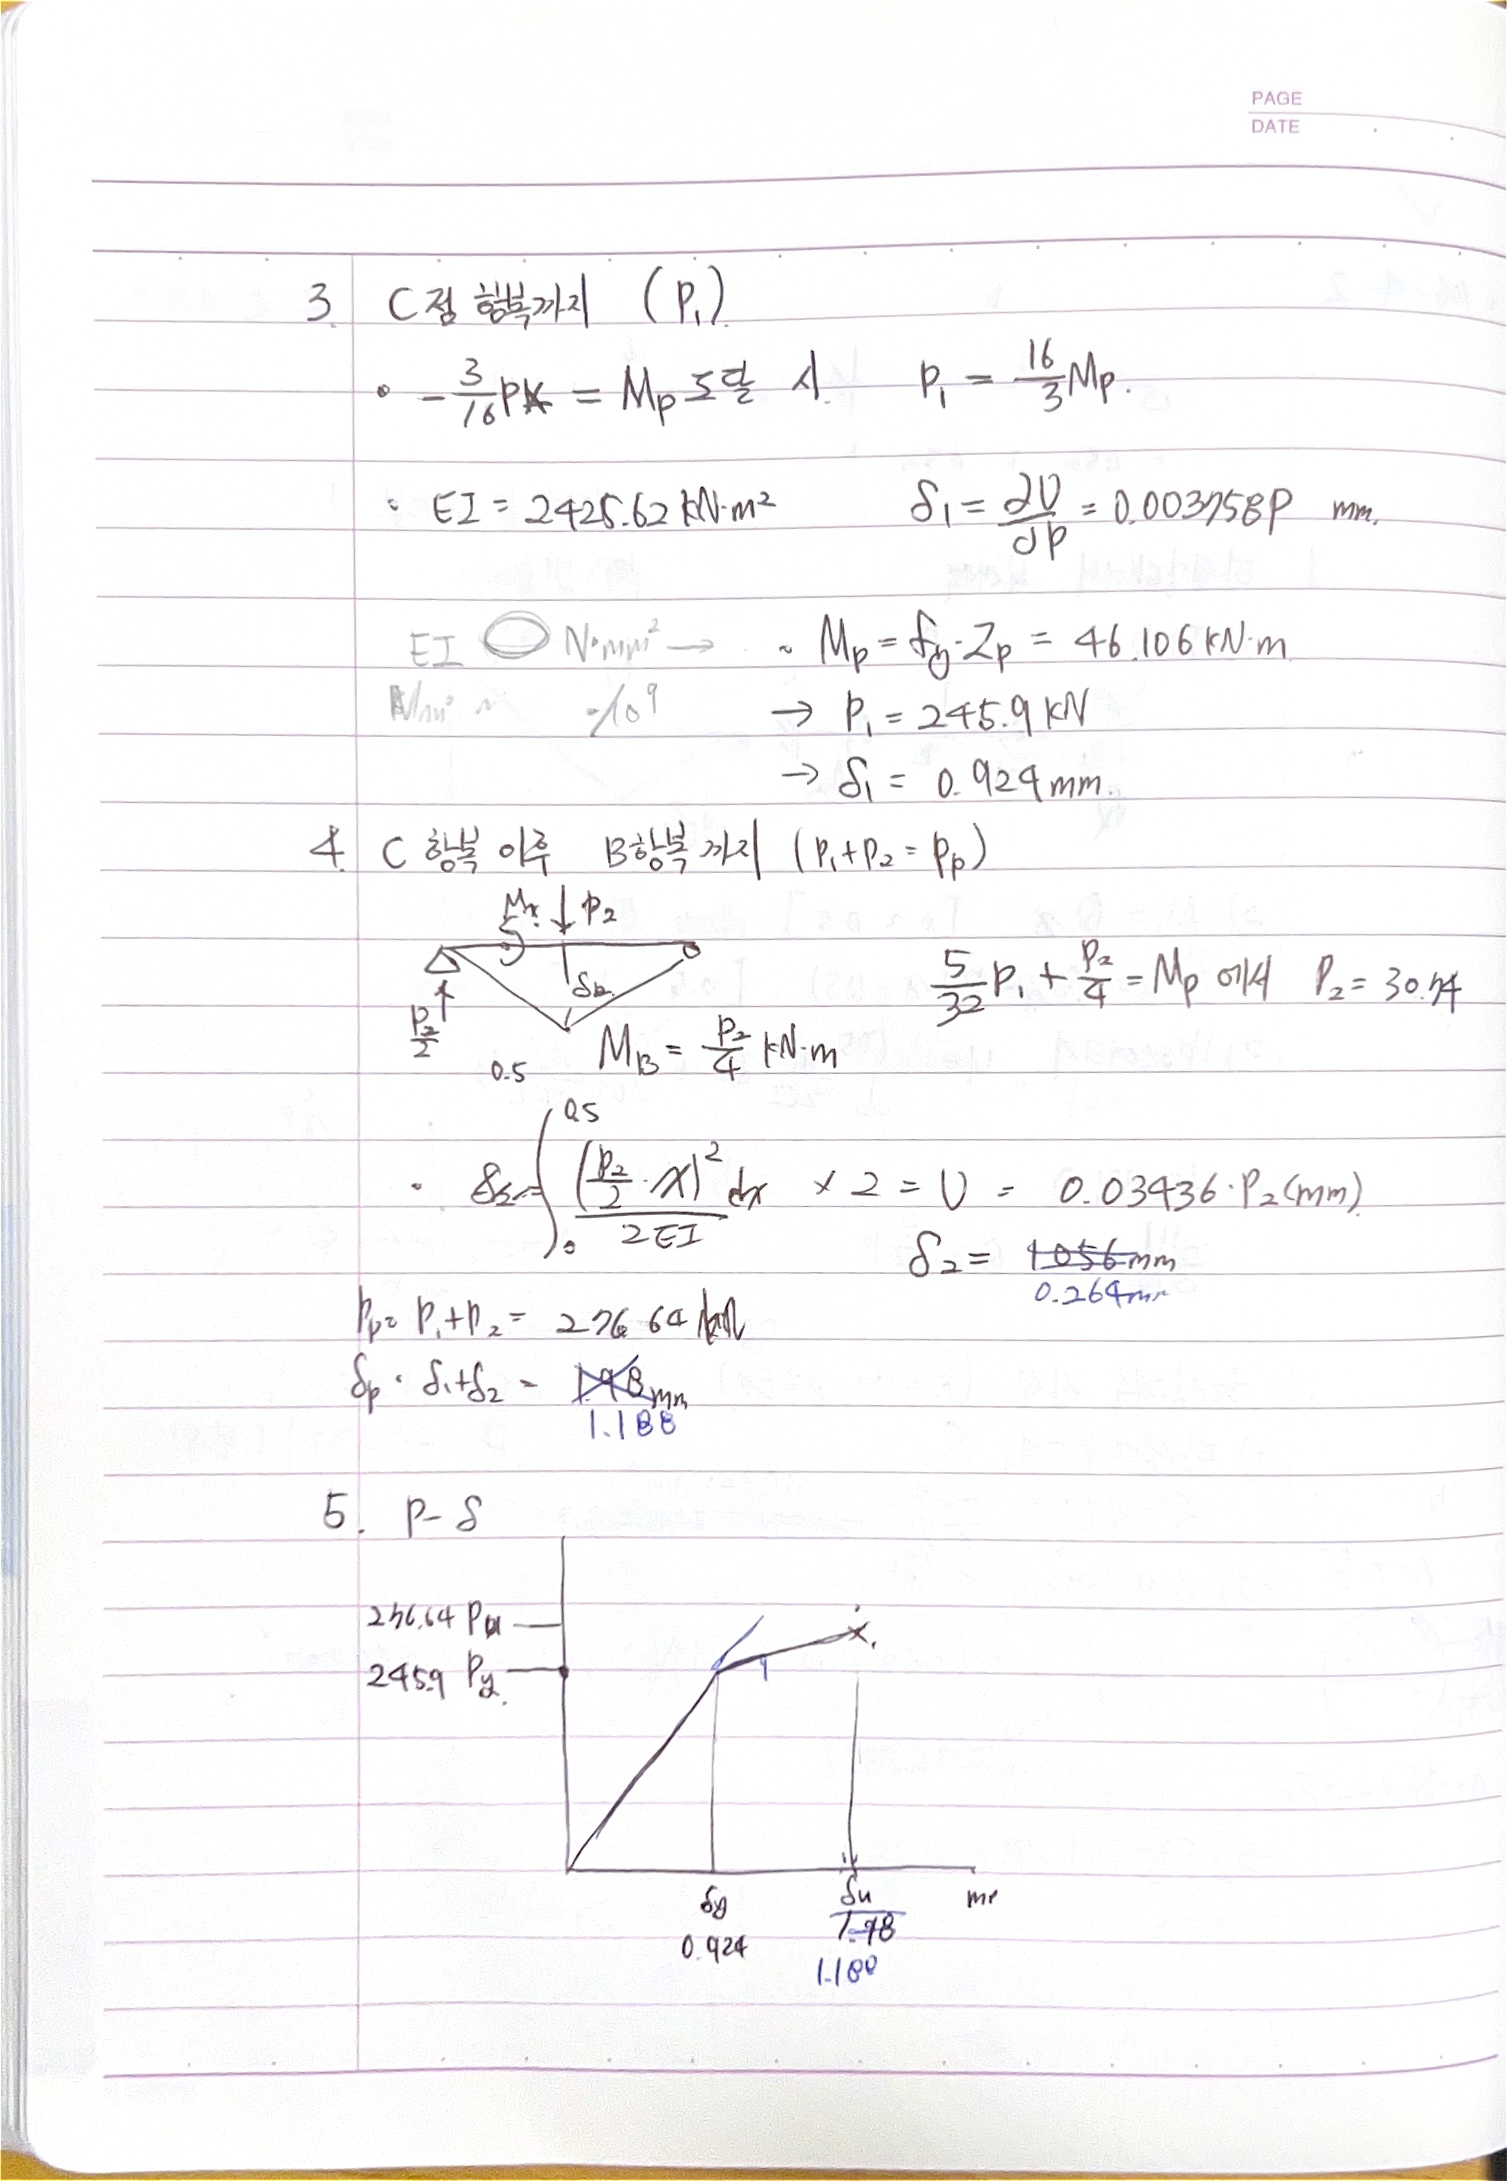 PAGE
DATE
3. C점 항복까지 (P₁)
• -3/16 P = Mp 도달 시. P₁ = 16/3 Mp.
EI = 2425.62 kN·m² δ₁ = ∂U/∂P = 0.003758P mm.
EI N·mm² → Mp = fy·Zp = 46.106 kN·m
·10⁹ → P₁ = 245.9 kN
→ δ₁ = 0.924 mm.
4. C 항복 이후 B항복까지 (P₁+P₂ = Pp)
P₂
δ₂
P₂/2
5/32 P₁ + P₂/4 = Mp 에서 P₂ = 30.74
MB = P₂/4 kN·m
0.5
• δ₂ = ∫₀^0.5 (P₂/2 · x)² / 2EI dx × 2 = U = 0.03436·P₂ (mm)
δ₂ = 1.056 mm
0.264 mm
Pp = P₁+P₂ = 276.64 kN
δp · δ₁+δ₂ = 1.98 mm
1.188
5. P-δ
276.64 Pu
245.9 Py
δy δu
0.924 1.98
1.188